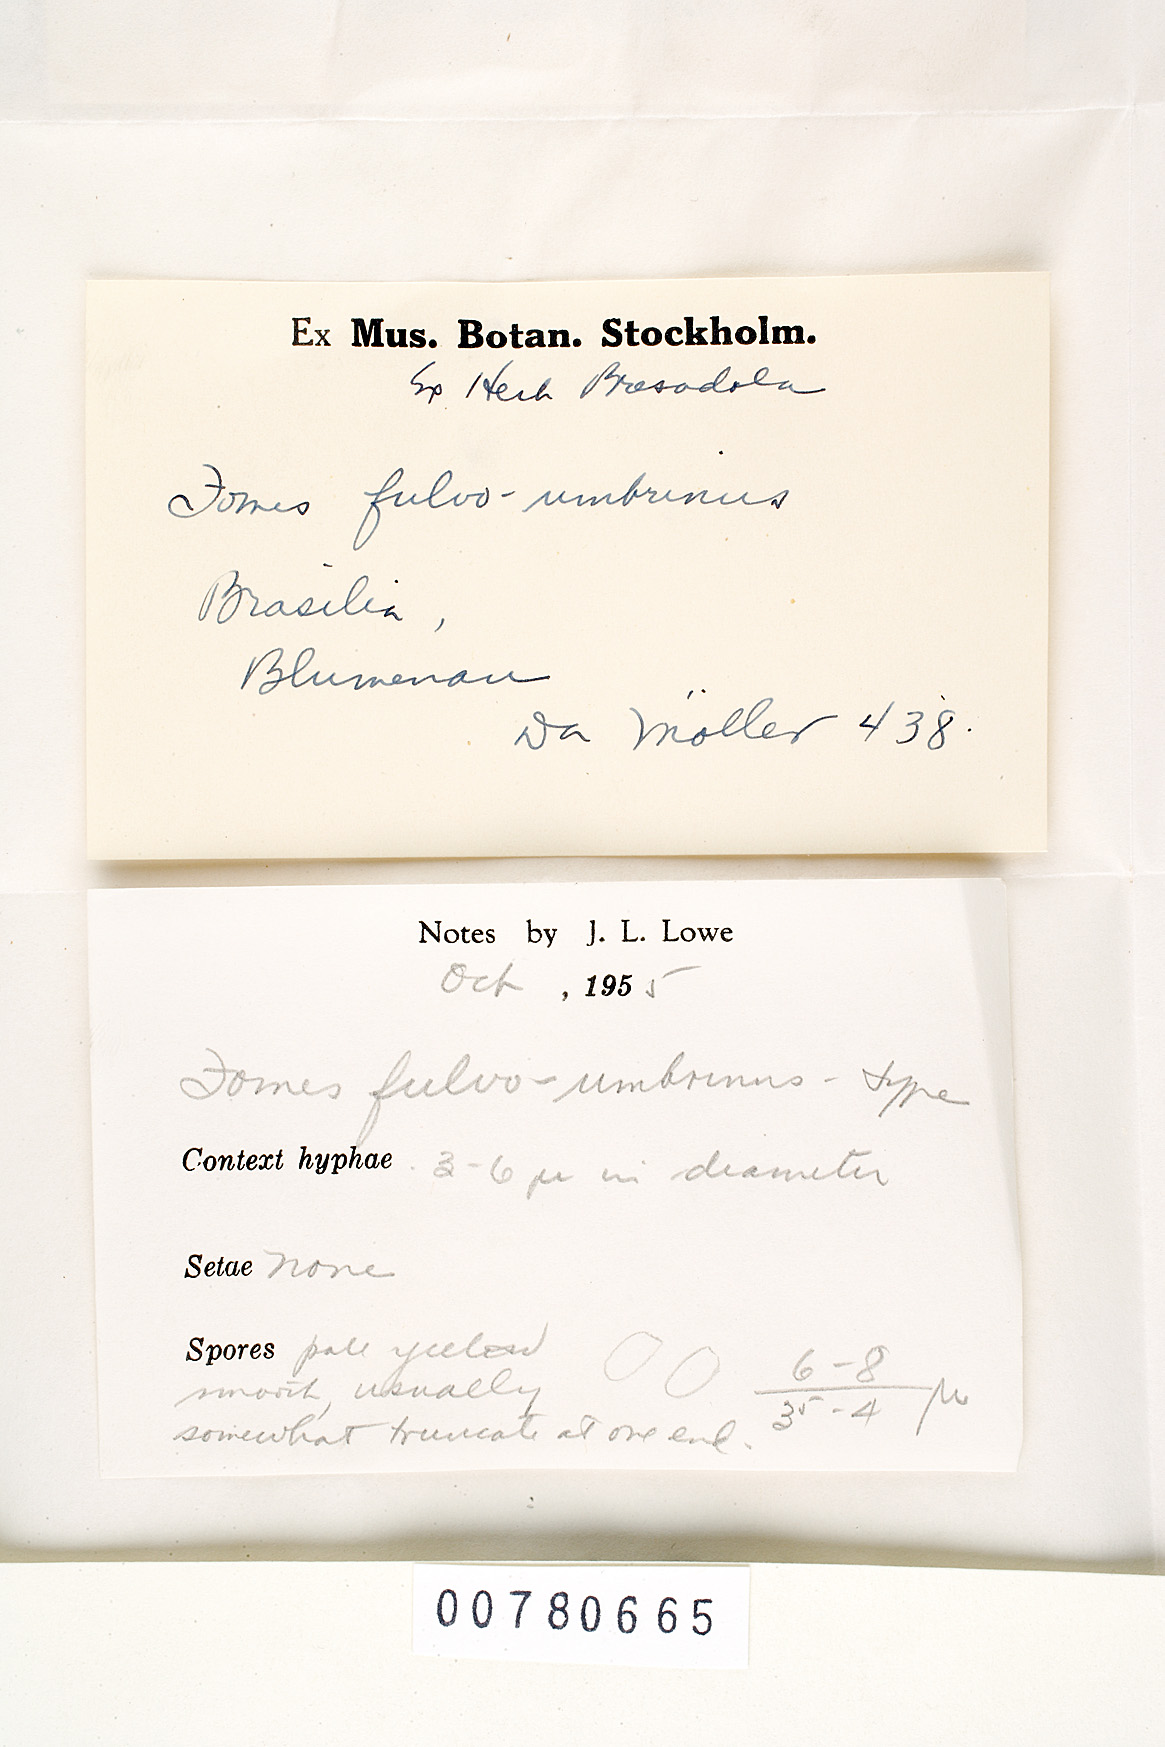 Ex Mus. Botan. Stockholm.
Ex Herb Bresadola
Fomes fulvo-umbrinus
Brasilia,
Blumenau
Da Möller 438.
Notes by J. L. Lowe
Oct , 1955
Fomes fulvo-umbrinus - type
Context hyphae 3-6 µ in diameter
Setae none
Spores pale yellow
smooth, usually
somewhat truncate at one end.
6-8
3⁵-4 µ
00780665